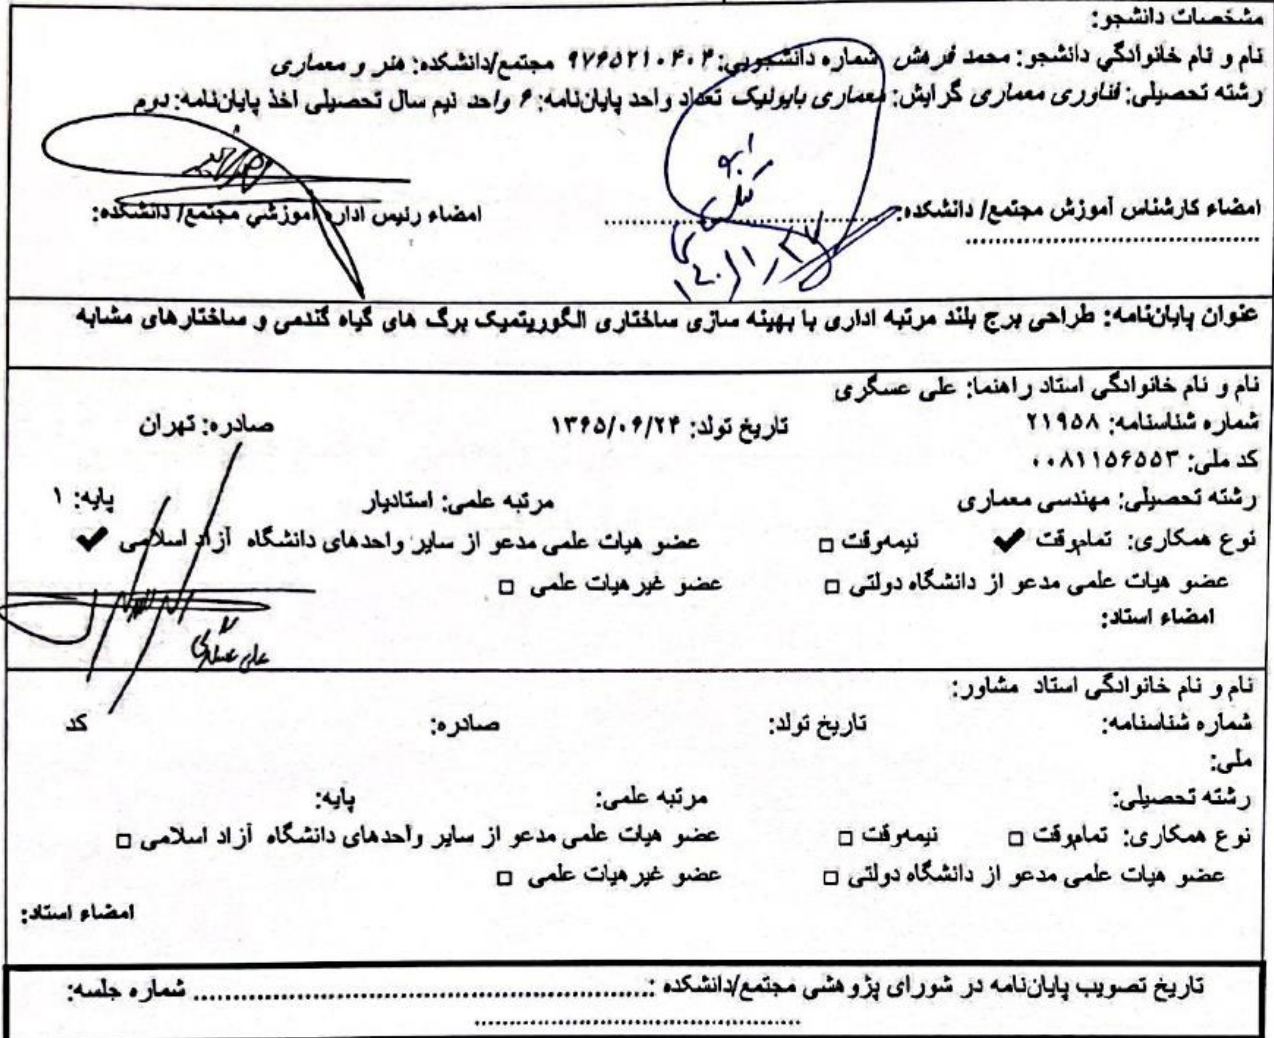 مشخصات دانشجو:
نام و نام خانوادگي دانشجو: محمد فرهش شماره دانشجویی: ۹۷۶۵۲۱۰۴۰۳ مجتمع/دانشکده: هنر و معماری
رشته تحصیلی: فناوری معماری گرایش: معماری بایولیک تعداد واحد پایان‌نامه: ۶ واحد نیم سال تحصیلی اخذ پایان‌نامه: دوم
امضاء کارشناس آموزش مجتمع/ دانشکده: .......................... امضاء رئیس اداره آموزشي مجتمع/ دانشکده:
..........................................
عنوان پایان‌نامه: طراحی برج بلند مرتبه اداری با بهینه سازی ساختاری الگوریتمیک برگ های گیاه گندمی و ساختارهای مشابه
نام و نام خانوادگی استاد راهنما: علی عسگری
شماره شناسنامه: ۲۱۹۵۸ تاریخ تولد: ۱۳۶۵/۰۶/۲۴ صادره: تهران
کد ملی: ۰۰۸۱۱۵۶۵۵۳
رشته تحصیلی: مهندسی معماری مرتبه علمی: استادیار پایه: ۱
نوع همکاری: تمام‌وقت ✔ نیمه‌وقت □ عضو هیات علمی مدعو از سایر واحدهای دانشگاه آزاد اسلامی ✔
عضو هیات علمی مدعو از دانشگاه دولتی □ عضو غیر هیات علمی □
امضاء استاد:
علی عسگری
نام و نام خانوادگی استاد مشاور:
شماره شناسنامه: تاریخ تولد: صادره: کد
ملی:
رشته تحصیلی: مرتبه علمی: پایه:
نوع همکاری: تمام‌وقت □ نیمه‌وقت □ عضو هیات علمی مدعو از سایر واحدهای دانشگاه آزاد اسلامی □
عضو هیات علمی مدعو از دانشگاه دولتی □ عضو غیر هیات علمی □
امضاء استاد:
تاریخ تصویب پایان‌نامه در شورای پژوهشی مجتمع/دانشکده :.................................................. شماره جلسه:
..........................................